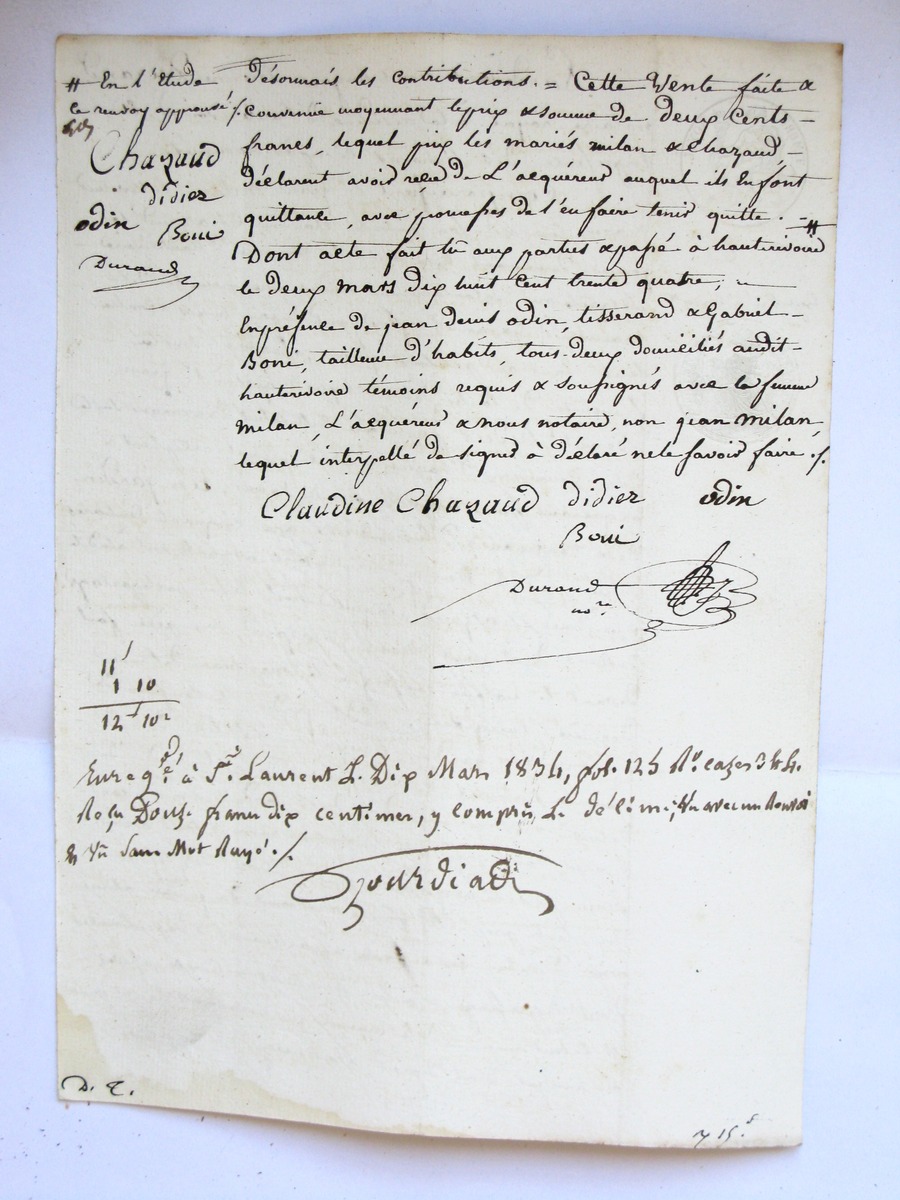 # En l'Etude
ce renvoy approuvé /.
Chazaud
didier
odin
Boni
Durand
désormais les contributions. = Cette Vente faite &
convenue moyennant le prix & somme de deux Cents -
francs, lequel prix les mariés milan & Chazaud, -
déclarent avoir reçu de L'acquéreur auquel ils En font
quittance, avec promesse de l'en faire tenir quitte. - #
Dont acte fait lû aux parties & passé à hauterivoire
le deux mars dix huit cent trente quatre, =
En présence de jean denis odin, tisserand & Gabriel -
Boni, tailleur d'habits, tous deux domiciliés audit -
hauterivoire témoins requis & soussignés avec la femme
milan, L'acquéreur & nous notaire, non jean milan,
lequel interpellé de signer à déclaré ne le savoir faire ./.
Claudine Chazaud didier odin
Boni
Durand
nore
11f
1 10
12f 10c
Enregé à St. Laurent L. Dix Mars 1834, fol. 125 Ro. cazes 3 & 4.
Reçu Douze francs dix centimes, y compris L. décime, Vn avec un Renvoi
& Vn Sans Mot Rayé ./.
Jourdiad
D. T.
7 15.c